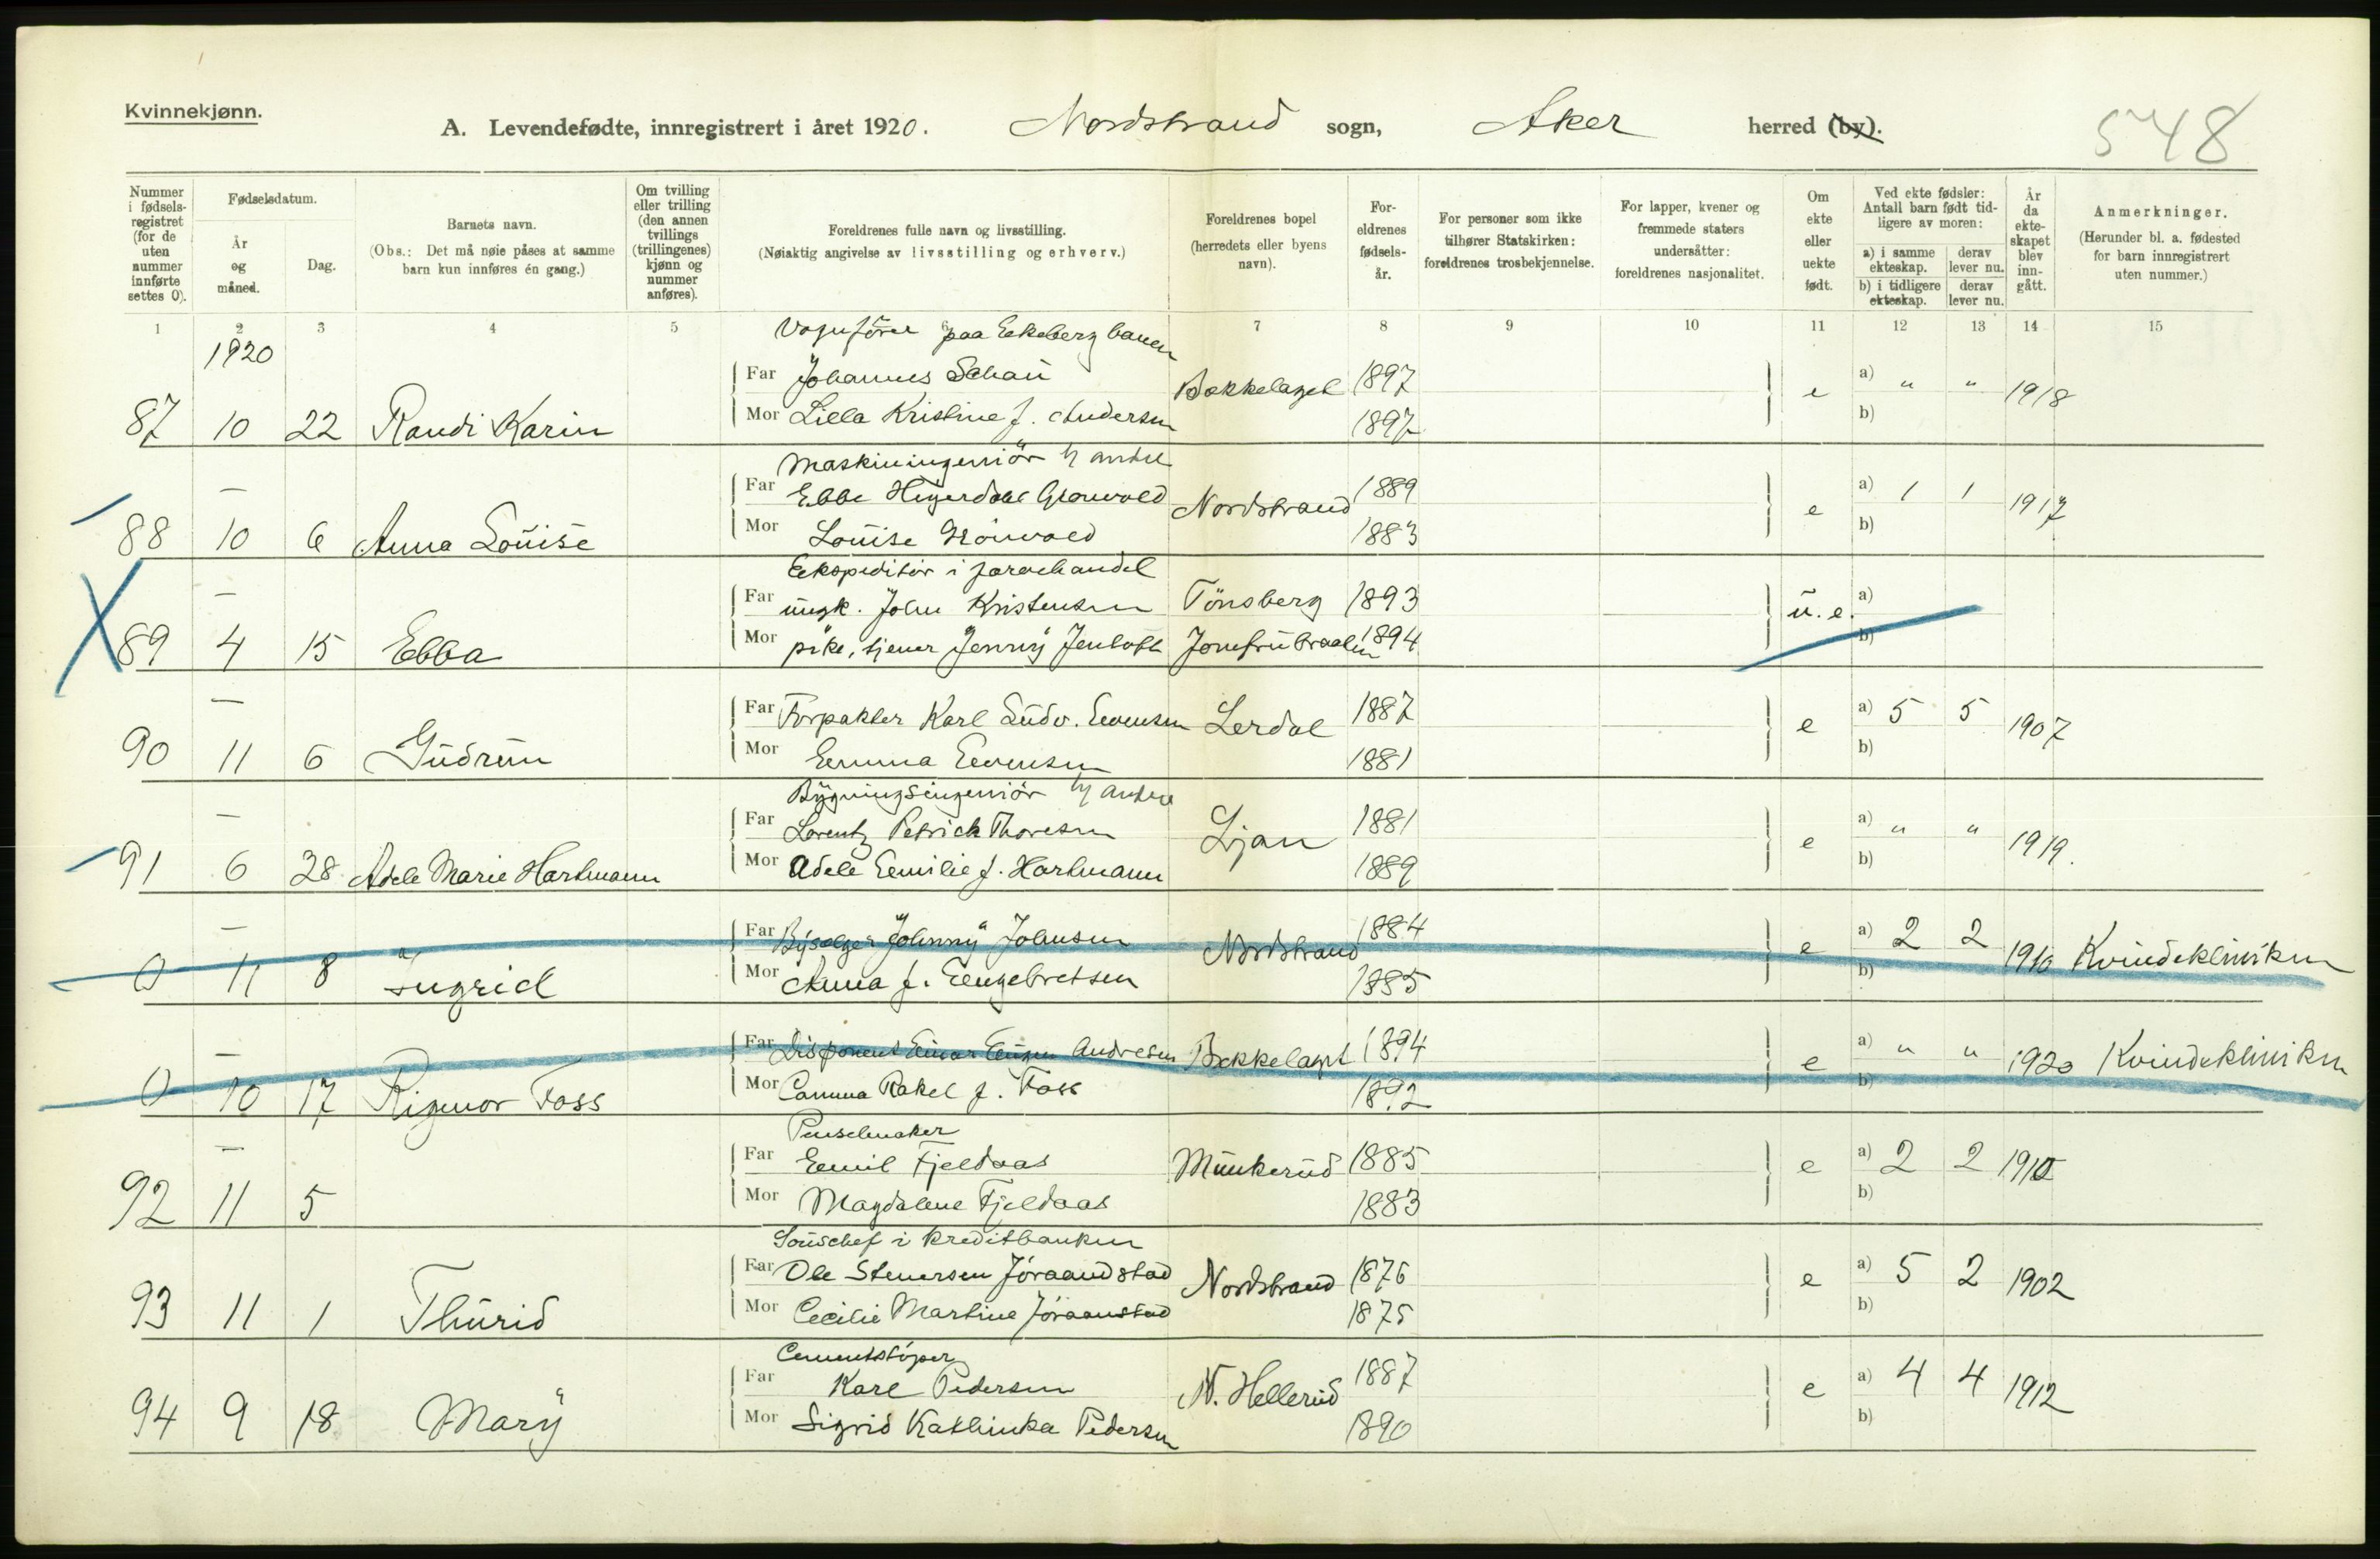 Kvinnekjønn.
A. Levendefødte, innregistrert i året 1920. Nordstrand sogn, Aker herred (by).
548
Nummer i fødsels-registret (for de uten nummer innførte settes 0).
Fødselsdatum.
År og måned.
Dag.
Barnets navn.
(Obs.: Det må nøie påses at samme barn kun innføres én gang.)
Om tvilling eller trilling (den annen tvillings (trillingenes) kjønn og nummer anføres).
Foreldrenes fulle navn og livsstilling.
(Nøiaktig angivelse av livsstilling og erhverv.)
Foreldrenes bopel (herredets eller byens navn).
For-eldrenes fødsels-år.
For personer som ikke tilhører Statskirken: foreldrenes trosbekjennelse.
For lapper, kvener og fremmede staters undersåtter: foreldrenes nasjonalitet.
Om ekte eller uekte født.
Ved ekte fødsler: Antall barn født tid-ligere av moren:
a) i samme ekteskap. derav lever nu.
b) i tidligere ekteskap. derav lever nu.
År da ekte-skapet blev inn-gått.
Anmerkninger.
(Herunder bl. a. fødested for barn innregistrert uten nummer.)
1 2 3 4 5 6 7 8 9 10 11 12 13 14 15
1920
Vognfører paa Eekebergbanen
Far Johannes Schau Bekkelaget 1897 e a) " " 1918
87 10 22 Randi Karin Mor Lilla Kristine f. Andersen 1897 b)
Maskiningeniör hj andre
— Far Ebbe Heyerdahl Grönvold Nordstrand 1889 e a) 1 1 1917
88 10 6 Anna Louise Mor Louise Grönvold 1883 b)
Eekspeditör i farvehandel
— Far ungk. John Kristensen Tönsberg 1893 u.e. a)
89 4 15 Ebba Mor pike, tjener Jenny Jentoft Jomfrubraaten 1894 b)
— Far Forpakter Karl Ludv. Eevensen Lerdal 1887 e a) 5 5 1907
90 11 6 Gudrun Mor Eemma Eevensen 1881 b)
Bygningsingeniör hj andre
— Far Lorentz Petrick Thoresen Ljan 1881 e a) " " 1919.
91 6 28 Adele Marie Hartmann Mor Adele Eemilie f. Hartmann 1889 b)
— Far Bysælger Johnny Johnsen Nordstrand 1884 e a) 2 2 1910 Kvindekliniken
0 11 8 Ingrid Mor Anna f. Eengebretsen 1885 b)
— Far Disponent Einar Eugen Andresen Bekkelaget 1894 e a) " " 1920 Kvindekliniken
0 10 17 Rigmor Foss Mor Camma Rakel f. Foss 1892 b)
Penselmaker
— Far Eemil Fjeldaas Munkerud 1885 e a) 2 2 1910
92 11 5 Mor Magdalene Fjeldaas 1883 b)
Souschef i Kreditbanken
Far Ole Stenersen Jöraandstad Nordstrand 1876 e a) 5 2 1902
93 11 1 Thurid Mor Cecilie Martine Jöraanstad 1875 b)
Cementstöper
Far Karl Pedersen N. Hellerud 1887 e a) 4 4 1912
94 9 18 Mary Mor Sigrid Kathinka Pedersen 1890 b)